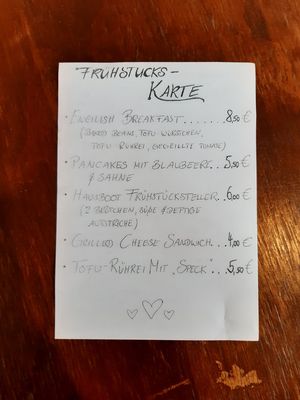 FRÜHSTÜCKS-
KARTE
• ENGLISH BREAKFAST...... 8,50€
(BAKED BEANS, TOFU-WÜRSTCHEN,
TOFU-RÜHREI, GEGRILLTE TOMATE)
• PANCAKES MIT BLAUBEERE.. 5,50€
& SAHNE
• HAUSBOOT FRÜHSTÜCKSTELLER.. 6,00€
(2 BRÖTCHEN, SÜßE & DEFTIGE
AUFSTRICHE)
• GRILLED CHEESE SANDWICH... 4,00€
• TOFU-RÜHREI MIT „SPECK"... 5,50€